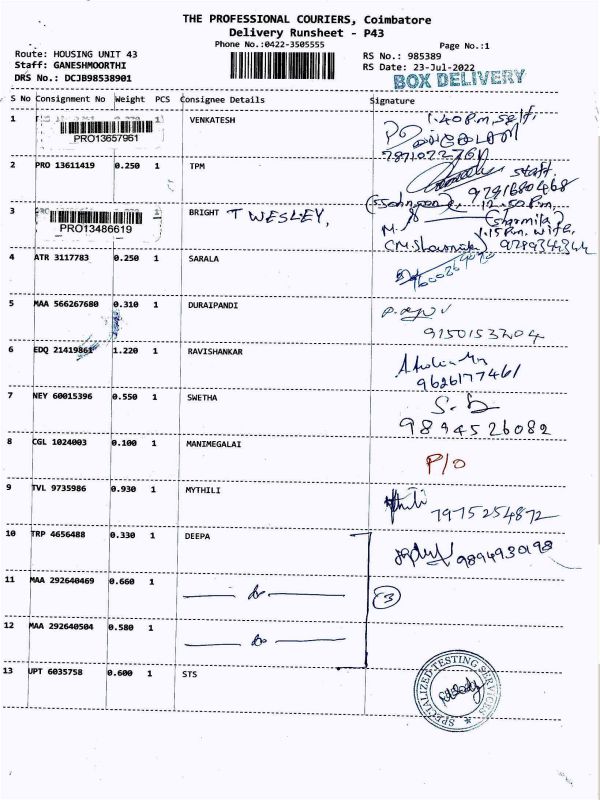 THE PROFESSIONAL COURIERS, Coimbatore
Delivery Runsheet - P43
Phone No.:0422-3505555
Page No.:1
Route: HOUSING UNIT 43
Staff: GANESHMOORTHI
DRS No.: DCJB98538901
RS No.: 985389
RS Date: 23-Jul-2022
BOX DELIVERY
S No Consignment No Weight PCS Consignee Details Signature
1 PRO13657961 VENKATESH 1.40 P.m, self,
2 PRO 13611419 0.250 1 TPM staff.
9791680468
12.50 P.m,
3 PRO13486619 1 BRIGHT T WESLEY,
1.15 P.m. wife.
4 ATR 3117783 0.250 1 SARALA
5 MAA 566267680 0.310 1 DURAIPANDI
9150153204
6 EDQ 21419861 1.220 1 RAVISHANKAR
9626177461
7 NEY 60015396 0.550 1 SWETHA
9894526082
8 CGL 1024003 0.100 1 MANIMEGALAI P/O
9 TVL 9735986 0.930 1 MYTHILI 7975254872
10 TRP 4656488 0.330 1 DEEPA 9894930198
11 MAA 292640469 0.660 1 do 3
12 MAA 292640504 0.580 1 do
13 UPT 6035758 0.600 1 STS
SPECIALIZED TESTING SERVICES